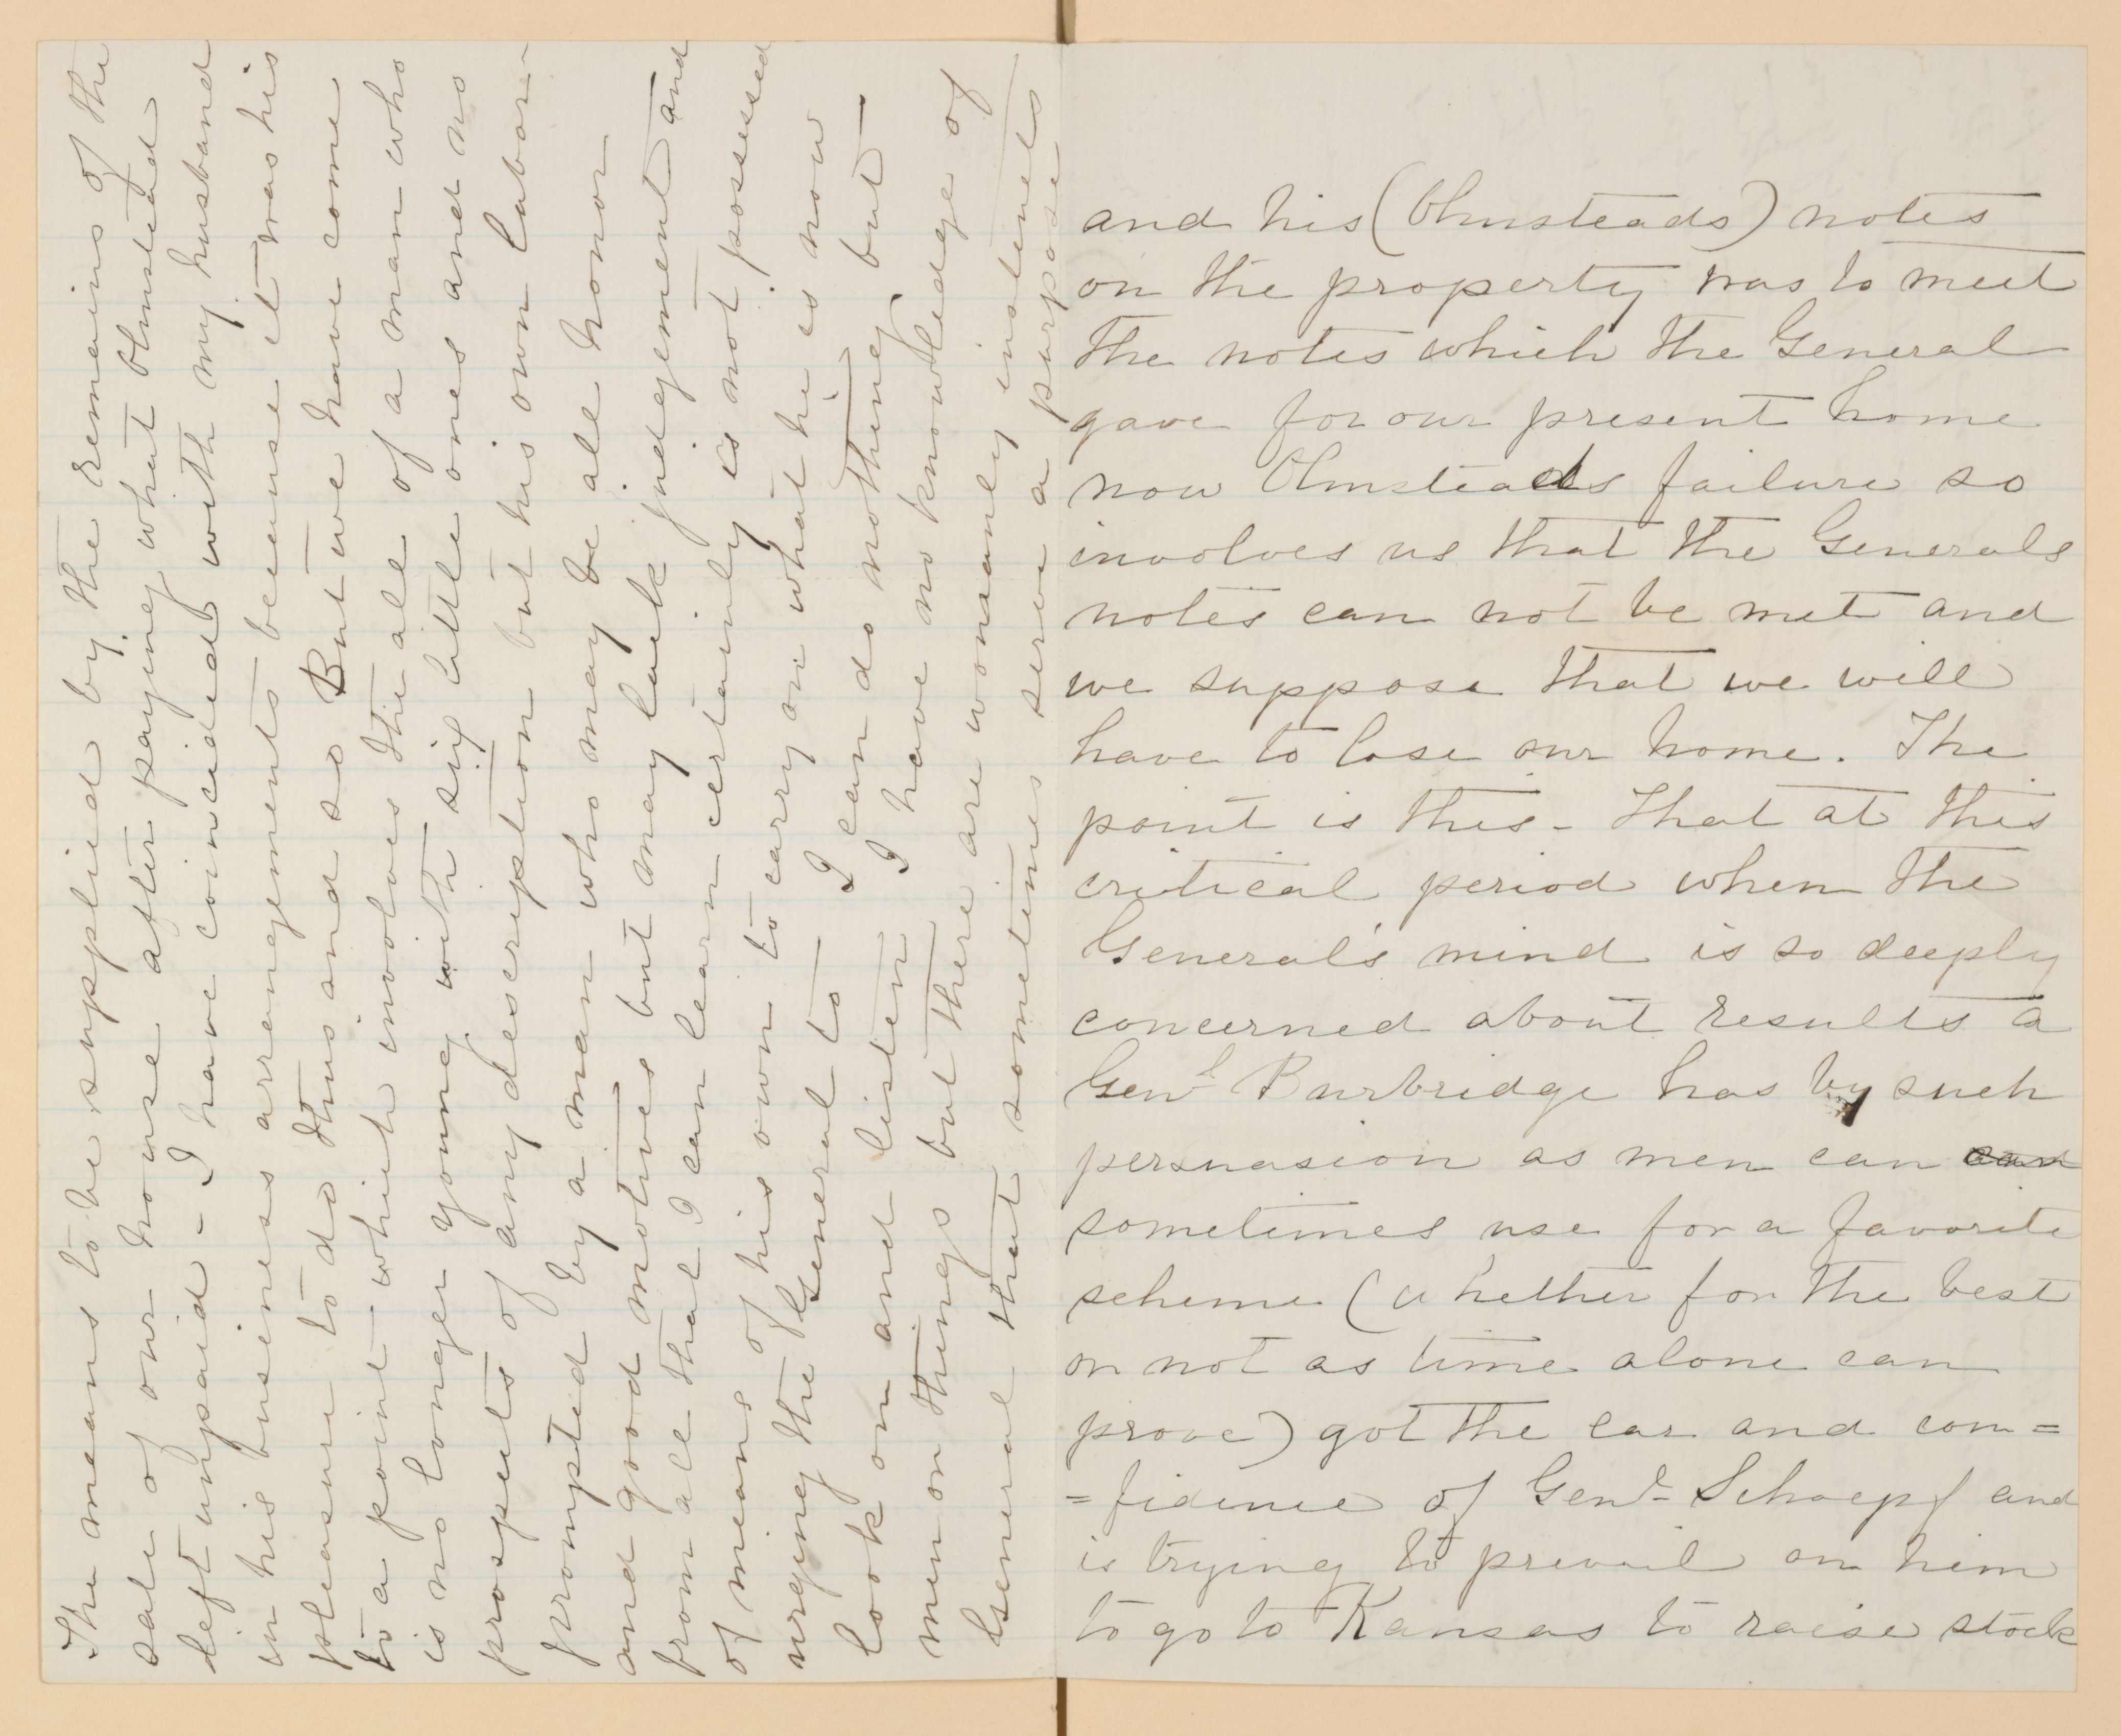 and his (Olmsteads) notes
on the property was to meet
the notes which the General
gave for our present home
now Olmsteads failure so
involves us that the Generals
notes can not be met and
we suppose that we will
have to lose our home. The
point is this - That at this
critical period when the
General's mind is so deeply
concerned about results a
Genl Burbridge has by such
persuasion as men can can
sometimes use for a favorite
scheme (whether for the best
or not as time alone can
prove) got the ear and con=
=fidence of Genl- Schoepf and
is trying to prevail on him
to go to Kansas to raise stock
The means to be supplied by the remains of the
sale of our house after paying what Olmstead
left unpaid - I have coincided with my husband
in his business arrangements because it was his
pleasure to do thus and so But we have come
to a point - which involves the all of a man who
is no longer young with six little ones and no
prospects of any description but his own labor -
prompted by a man who may be all honor
and good motives but may lack judgement and
from all that I can learn certainly is not possessed
of means of his own to carry on what he is now
urging the General to - I can do nothing but -
look on and listen I have no knowledge of
men or things but there are womanly instincts
General that sometimes serve a purpose